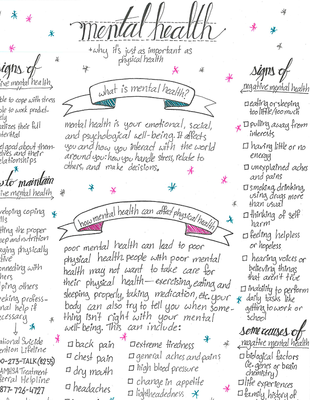 mental health
*why it's just as important as
physical health
signs of
positive mental health
able to cope with stress
able to work produc-
tively
realizes their full
potential
feel good about them-
selves and their
relationships
how to maintain
positive mental health
developing coping
skills
getting the proper
sleep and nutrition
engaging physically
active
connecting with
others
helping others
seeking profess-
ional help if
necessary
National Suicide
Prevention Lifeline
800-273-TALK(8255)
SAMHSA Treatment
Referral Helpline
1-877-726-4727
what is mental health?
mental health is your emotional, social,
and psychological well-being. It affects
you and how you interact with the world
around you: how you handle stress, relate to
others, and make decisions.
how mental health can affect physical health
poor mental health can lead to poor
physical health. people with poor mental
health may not want to take care for
their physical health—exercising, eating and
sleeping properly, taking medication, etc. your
body can also try to tell you when some-
thing isn't right with your mental
well-being. This can include:
back pain
chest pain
dry mouth
headaches
extreme tiredness
general aches and pains
high blood pressure
change in appetite
lightheadedness
signs of
negative mental health
eating or sleeping
too little/too much
pulling away from
interests
having little or no
energy
unexplained aches
and pains
smoking, drinking,
using drugs more
than usual
thinking of self
harm
feeling helpless
or hopeless
hearing voices or
believing things
that aren't true
inability to perform
daily tasks like
getting to work or
school
some causes of
negative mental health
biological factors
(ie. genes or brain
chemistry)
life experiences
family history of